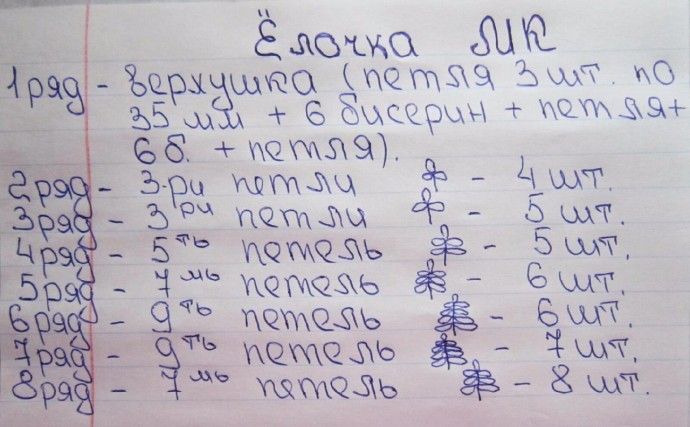 Ёлочка МК
1 ряд - верхушка (петля 3 шт. по
35 мм + 6 бисерин + петля +
6 б. + петля).
2 ряд - 3-ри петли - 4 шт.
3 ряд - 3 ри петли - 5 шт.
4 ряд - 5 ть петель - 5 шт.
5 ряд - 7 мь петель - 6 шт.
6 ряд - 9 ть петель - 6 шт.
7 ряд - 9 ть петель - 7 шт.
8 ряд - 7 мь петель - 8 шт.